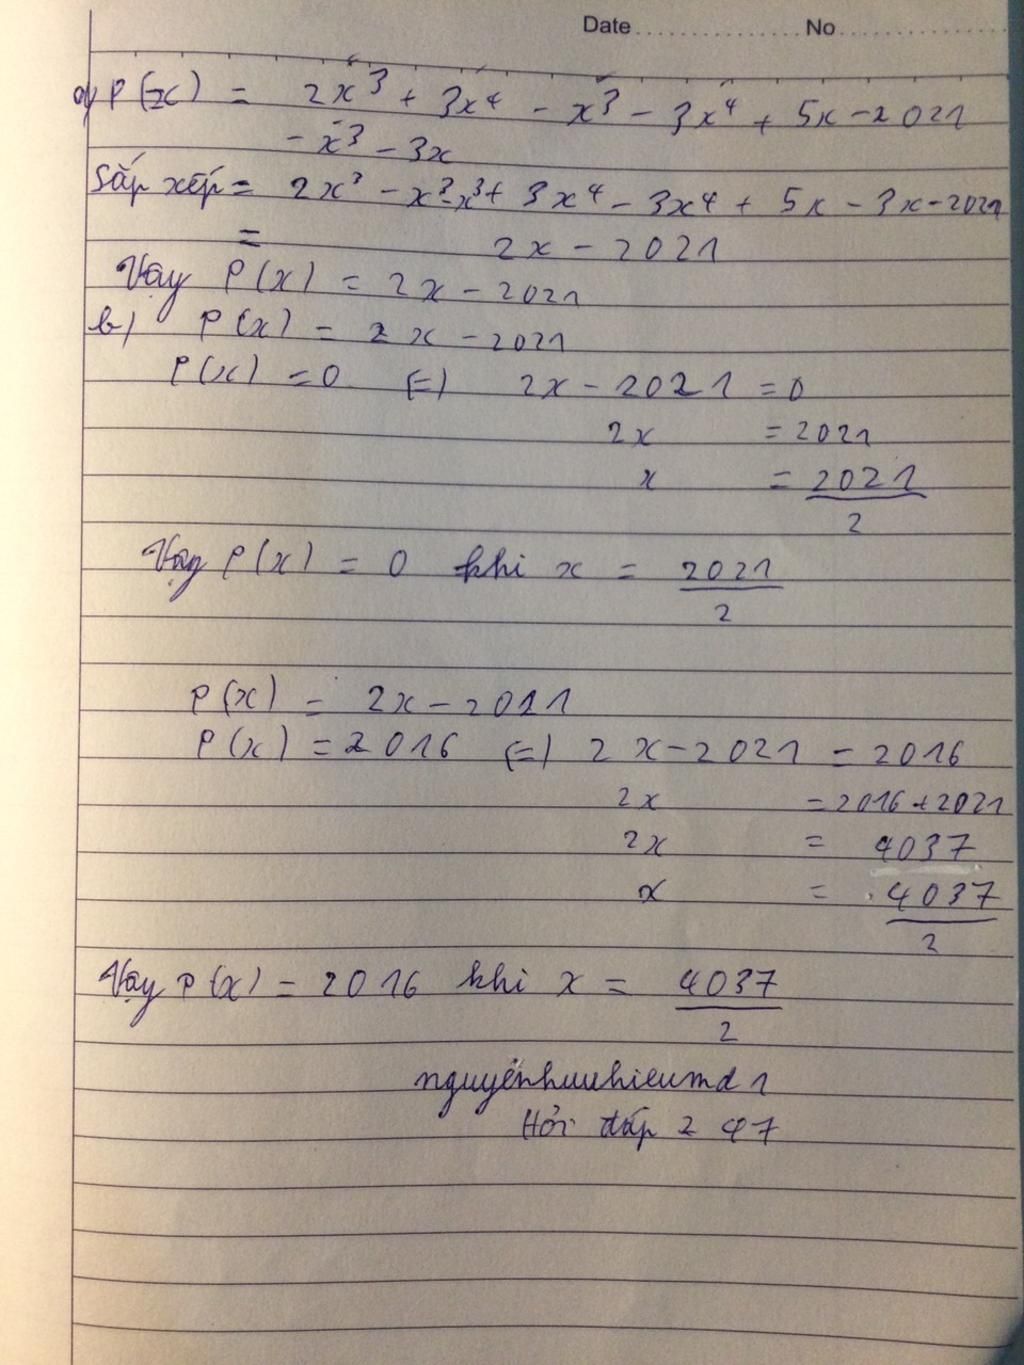 Date No
a) P(x) = 2x³ + 3x⁴ - x³ - 3x⁴ + 5x - 2021
- x³ - 3x
Sắp xếp = 2x³ - x³ - x³ + 3x⁴ - 3x⁴ + 5x - 3x - 2021
= 2x - 2021
Vậy P(x) = 2x - 2021
b) P(x) = 2x - 2021
P(x) = 0 (=) 2x - 2021 = 0
2x = 2021
x = 2021
2
Vậy P(x) = 0 khi x = 2021
2
P(x) = 2x - 2021
P(x) = 2016 (=) 2x - 2021 = 2016
2x = 2016 + 2021
2x = 4037
x = 4037
2
Vậy P(x) = 2016 khi x = 4037
2
nguyênhuuhieumd1
Hỏi đáp 247